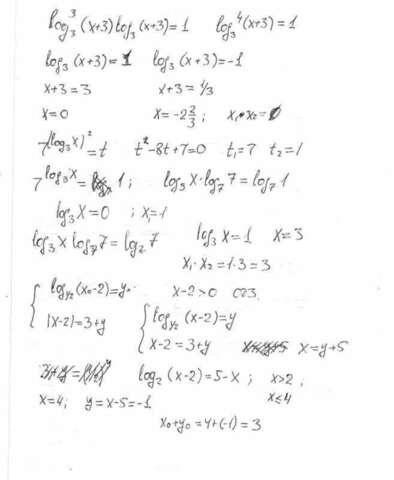 log₃³(x+3)log₃(x+3)=1 log₃⁴(x+3)=1
log₃(x+3)=1 log₃(x+3)=-1
x+3=3 x+3=1/3
x=0 x=-2 2/3; x₁·x₂=0
7^(log₃x)²=t t²-8t+7=0 t₁=7 t₂=1
7^log₃x = 1; log₃x·log₇7=log₇1
log₃x=0 ; x=1
log₃x log₇7=log₇7 log₃x=1 x=3
x₁·x₂=1·3=3
{ log_{1/2}(x-2)=y x-2>0 ОДЗ.
|x-2|=3+y { log_{1/2}(x-2)=y
x-2=3+y x=y+5
log₂(x-2)=5-x; x>2,
x=4; y=x-5=-1 x≤4
x₀+y₀=4+(-1)=3